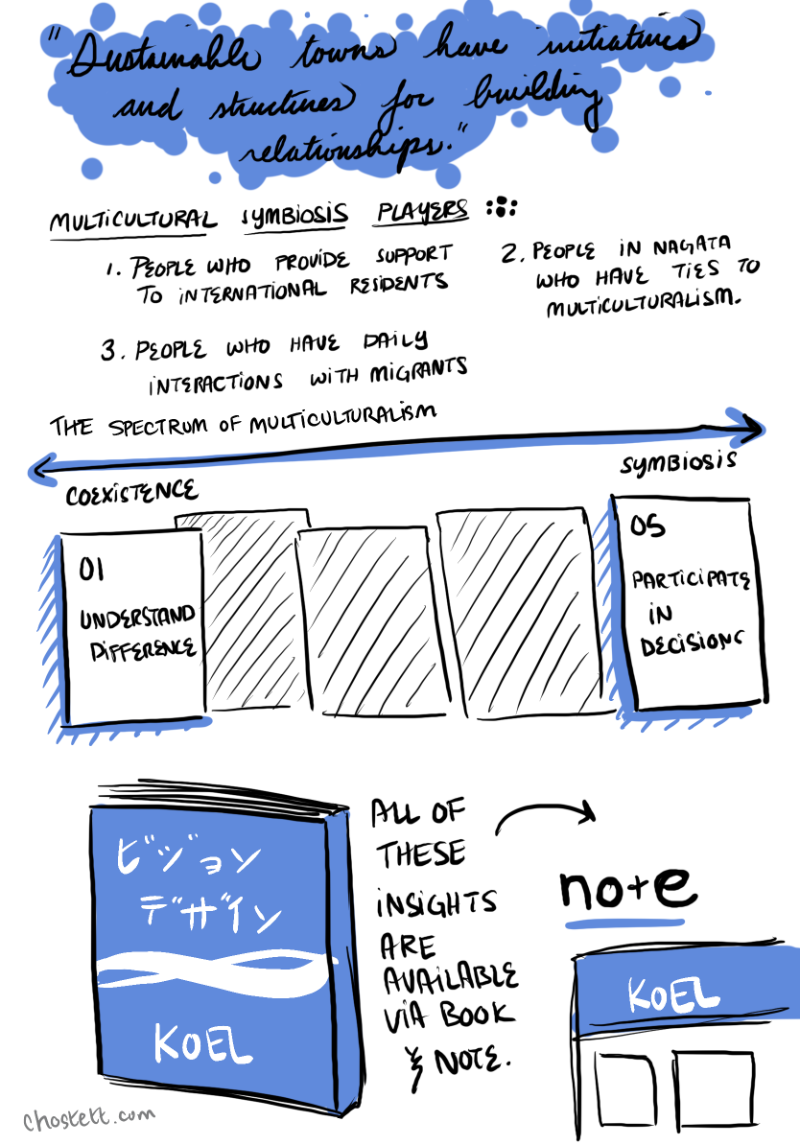 "Sustainable towns have initiatives
and structures for building
relationships."
MULTICULTURAL SYMBIOSIS PLAYERS
1. PEOPLE WHO PROVIDE SUPPORT
TO INTERNATIONAL RESIDENTS
2. PEOPLE IN NAGATA
WHO HAVE TIES TO
MULTICULTURALISM.
3. PEOPLE WHO HAVE DAILY
INTERACTIONS WITH MIGRANTS
THE SPECTRUM OF MULTICULTURALISM
COEXISTENCE
SYMBIOSIS
01
UNDERSTAND
DIFFERENCE
05
PARTICIPATE
IN
DECISIONS
ビジョン
デザイン
KOEL
ALL OF
THESE
INSIGHTS
ARE
AVAILABLE
VIA BOOK
& NOTE.
note
KOEL
chostett.com